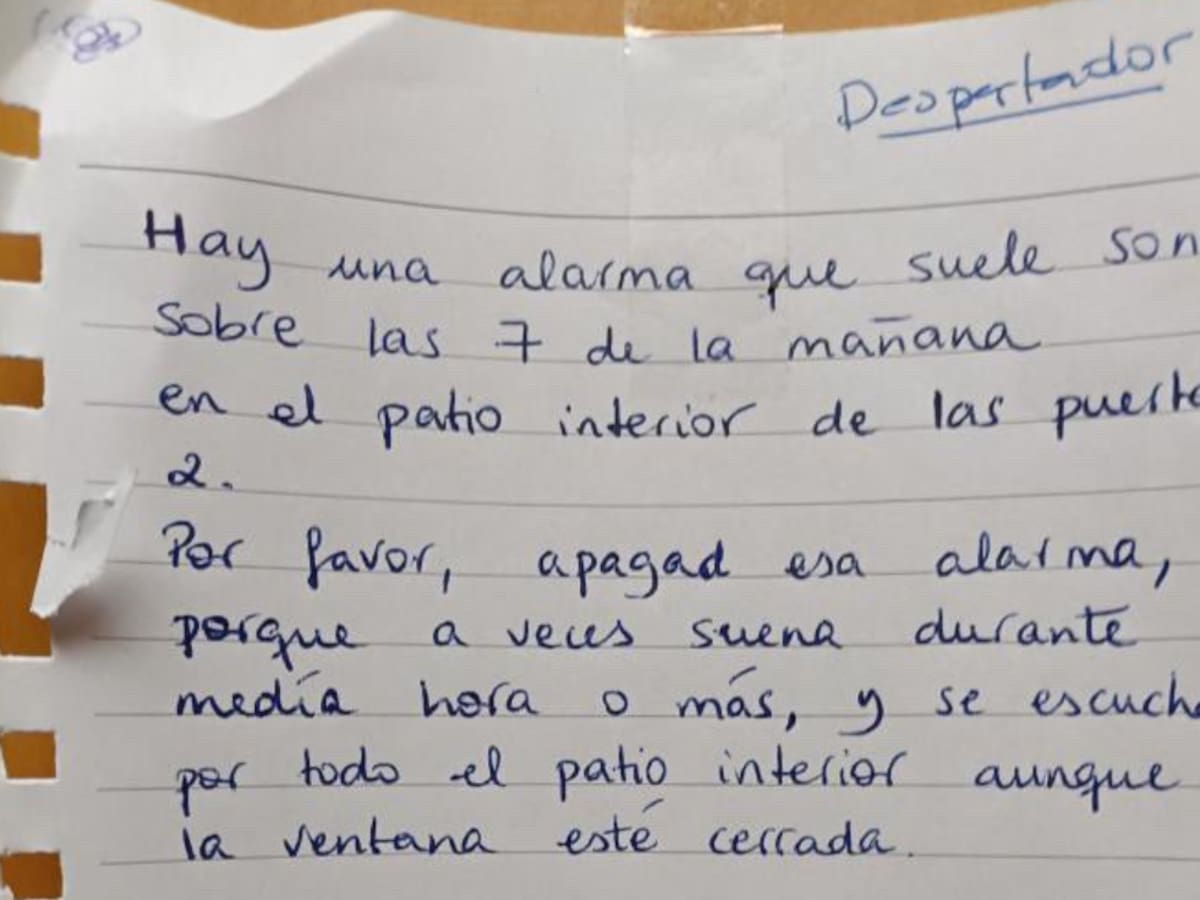 Despertador
Hay una alarma que suele son
sobre las 7 de la mañana
en el patio interior de las puerta
2.
Por favor, apagad esa alarma,
porque a veces suena durante
media hora o más, y se escucha
por todo el patio interior aunque
la ventana esté cerrada.